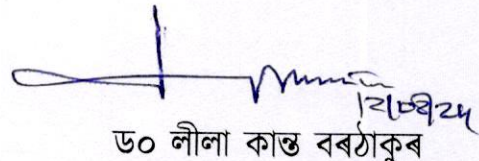 ড০ লীলা কান্ত বৰঠাকুৰ